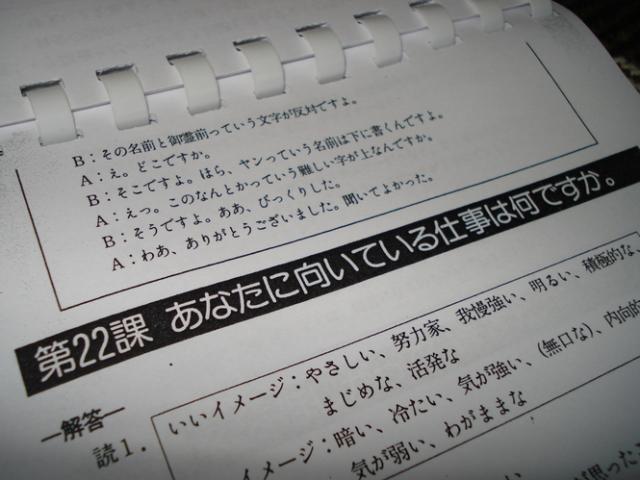 B：その名前と御霊前っていう文字が反対ですよ。
A：え。どこですか。
B：そこですよ。ほら、ヤンっていう名前は下に書くんですよ。
A：えっ。このなんとかっていう難しい字が上なんですか。
B：そうですよ。ああ、びっくりした。
A：わあ、ありがとうございました。聞いてよかった。
第22課 あなたに向いている仕事は何ですか。
―解答―
読1．
いいイメージ：やさしい、努力家、我慢強い、明るい、積極的な、
まじめな、活発な
イメージ：暗い、冷たい、気が強い、(無口な)、内向的
気が弱い、わがままな
が思ったこ